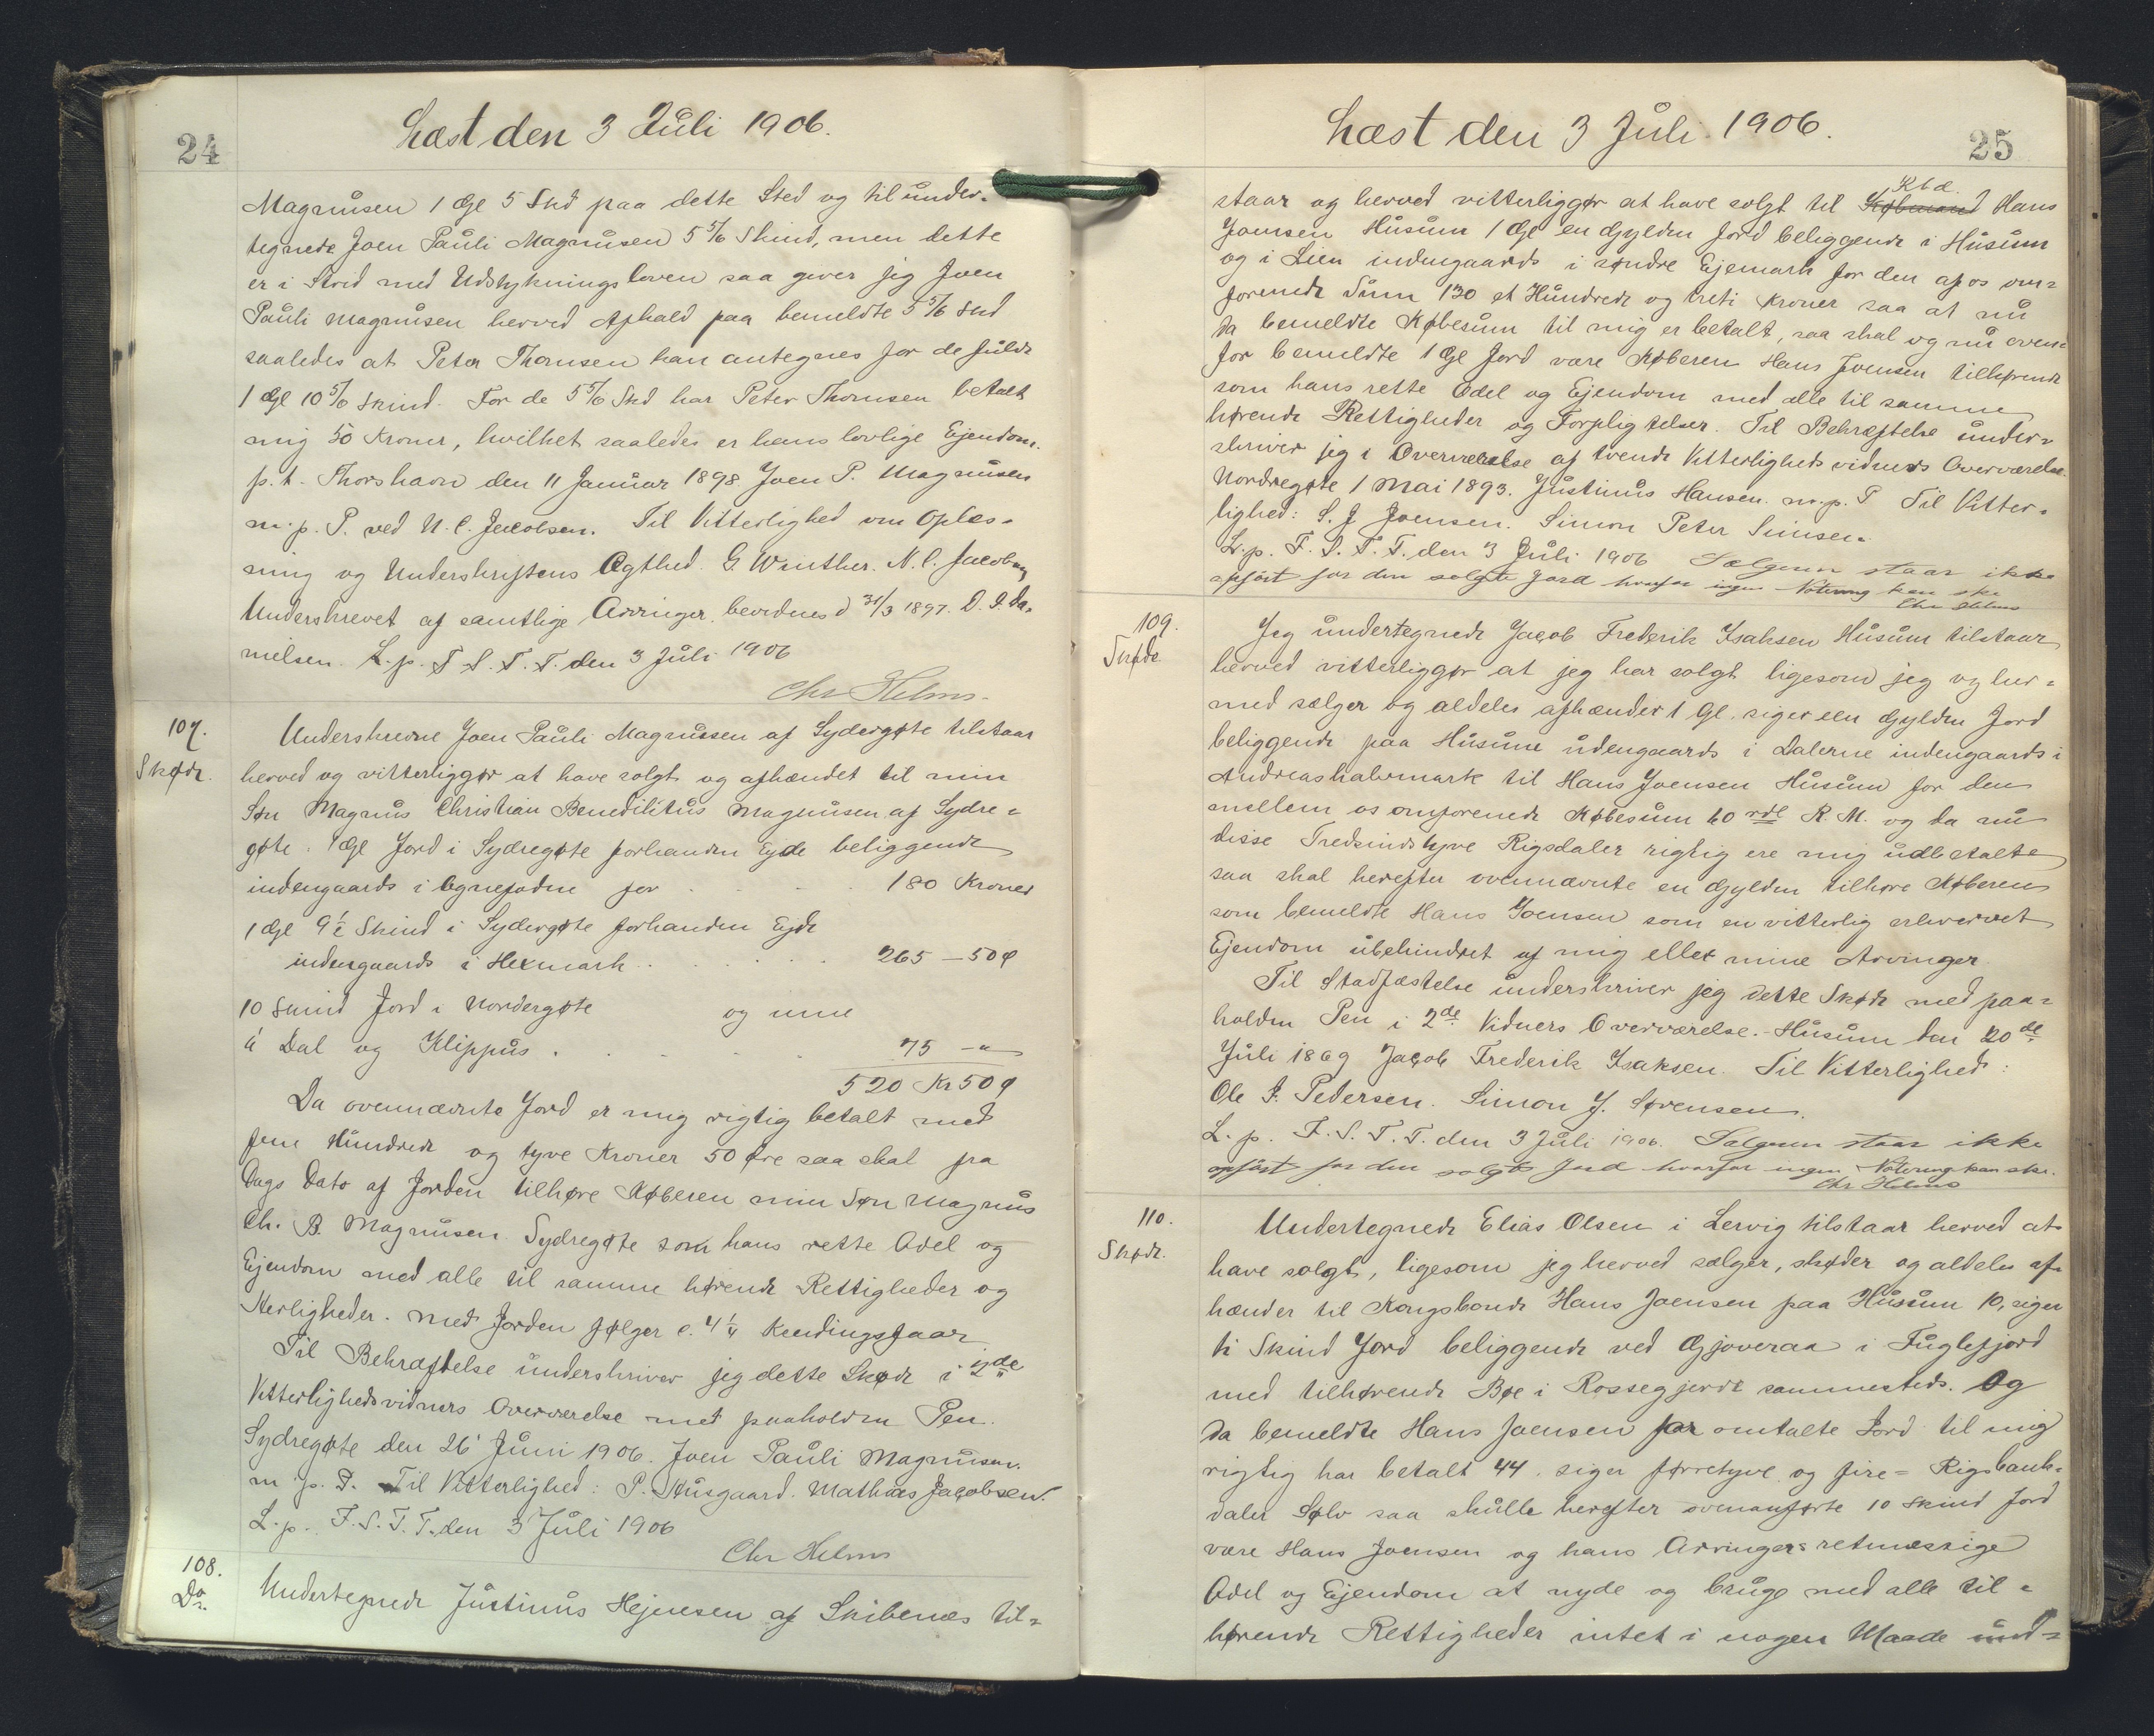 24
Læst den 3 Juli 1906.
Magnusen 1 Gl 5 Skd paa dette Sted og til under-
tegnede Joen Pauli Magnusen 5 5/6 Skind, men dette
er i Strid med Udstykningsloven saa giver jeg Joen
Pauli Magnusen herved Afkald paa bemeldte 5 5/6 Skd
saaledes at Peter Thomsen kan antegnes for de fulde
1 Gl 10 5/6 Skind. For de 5 5/6 Skd har Peter Thomsen betalt
mig 50 Kroner, hvilket saaledes er hans lovlige Ejendom.
p.t. Thorshavn den 11 Januar 1898 Joen P. Magnusen
m.p.P. ved N. C. Jacobsen. Til Vitterlighed om Oplæs-
ning og Underskriftens Ægthed. G Winther. N. C. Jacobsen
Underskrevet af samtlige Arvinger bevidnes d 31/3 1897. D. J. Da-
nielsen. L. p. F. S. T. T. den 3 Juli 1906
Chr Helms
107.
Skøde.
Underskrevne Joen Pauli Magnussen af Sydergøte tilstaar
herved og vitterliggør at have solgt og afhændet til min
Søn Magnus Christian Benediktus Magnusen af Sydre-
gøte: 1 Gl Jord i Sydregøte forhenden Ejde beliggende
indengaards i Ognefoden for 180 Kroner
1 Gl 9 1/2 Skind i Sydergøte forhanden Ejde
indengaards i Hexmark 265 — 50 Ø
10 Skind Jord i Nordergøte og inne
i Dal og Klippus 75 - "
520 Kr 50 Ø
Da ovennævnte Jord er mig rigtig betalt med
fem Hundrede og tyve Kroner 50 Øre saa skal fra
Dags Dato af Jorden tilhøre Køberen min Søn Magnus
Ch. B. Magnusen Sydregøte som hans rette Odel og
Ejendom med alle til samme hørende Rettigheder og
Herligheder. Med Jorden følger c. 4 1/4 Kendingsfaar
Til Bekræftelse underskriver jeg dette Skøde i 2de
Vitterlighedsvidners Overværelse med paaholden Pen.
Sydregøte den 26 Juni 1906. Joen Pauli Magnusen.
m.p.P. Til Vitterlighed: P. Husgaard. Mathias Jacobsen.
L. p. F. S. T. T. den 3 Juli 1906
Chr Helms
108.
Do.
Undertegnede Justinus Hejnesen af Skibenæs til-
Læst den 3 Juli 1906.
25
staar og herved vitterliggør at have solgt til Købmand Kbd. Hans
Joensen Husum 1 Gl en Gylden Jord beliggende i Husum
og i Lien indengaards i søndre Ejemark for den af os om-
forenede Sum 130 et Hundrede og treti Kroner saa at nu
da bemeldte Købesum til mig er betalt, saa skal og nu oven-
for bemeldte 1 Gl Jord være Køberen Hans Joensen tilhørende
som hans rette Odel og Ejendom med alle til samme
hørende Rettigheder og Forpligtelser. Til Bekræftelse under-
skriver jeg i Overværelse af tvende Vitterlighedsvidners Overværelse.
Nordregøte 1 Mai 1893. Justinus Hansen. m.p.P Til Vitter-
lighed: S. J Joensen. Simon Peter Simsen.
L. p. F. S. T. T. den 3 Juli 1906 Sælgeren staar ikke
opført for den solgte Jord hvorfor ingen Notering kan ske
Chr Helms
109.
Skøde.
Jeg undertegnede Jacob Frederik Isaksen Husum tilstaar
herved vitterliggør at jeg har solgt ligesom jeg og her-
med sælger og aldeles afhænder 1 Gl. siger een Gylden Jord
beliggende paa Husum udengaards i Dalerne indengaards i
Andreashalvmark til Hans Joensen Husum for den
mellem os omforenede Købesum 60 rdl R. M. og da nu
disse Tredsindstyve Rigsdaler rigtig ere mig udbetalte
saa skal herefter ovennævnte en Gylden tilhøre Køberen
som bemeldte Hans Joensen som en vitterlig erhvervet
Ejendom ubehindret af mig eller mine Arvinger.
Til Stadfæstelse underskriver jeg dette Skøde med paa-
holden Pen i 2de Vidners Overværelse. Husum den 20de
Juli 1869 Jacob Frederik Isaksen. Til Vitterlighed:
Ole J. Pedersen. Simon J. Sørensen.
L. p. F. S. T. T. den 3 Juli 1906. Sælgeren staar ikke
opført for den solgte Jord hvorfor ingen Notering kan ske.
Chr Helms
110.
Skøde.
Undertegnede Elias Olsen i Lervig tilstaar herved at
have solgt, ligesom jeg herved sælger, skøder og aldeles af-
hænder til Kongsbonde Hans Joensen paa Husum 10, siger
ti Skind Jord beliggende ved Gjoveraa i Fuglefjord
med tilhørende Bøe i Rossegjerde sammesteds. Og
da bemeldte Hans Joensen for omtalte Jord til mig
rigtig har betalt 44. siger førretyve og fire = Rigsbank-
daler Sølv saa skulle herefter ovenanførte 10 Skind Jord
være Hans Joensen og hans Arvingers retmæssige
Odel og Ejendom at nyde og bruge med alle til-
hørende Rettigheder intet i nogen Maade und-